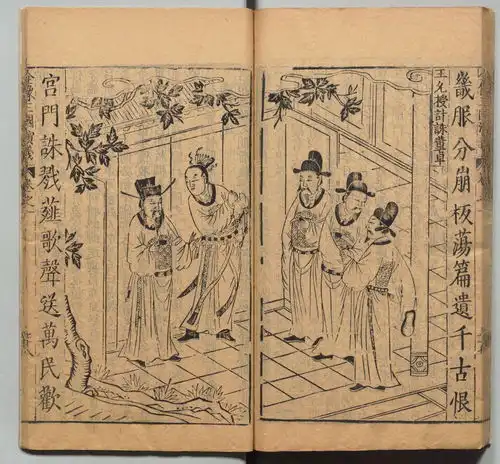 王允授計誅董卓
畿服分崩板蕩篇遺千古恨
宮門誅戮薤歌聲送萬民歡